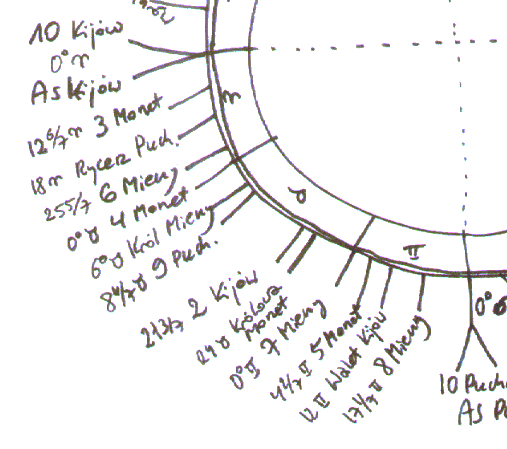 10 Kijów
0° ♈
As Kijów
12 6/7 ♈ 3 Monet
18 ♈ Rycerz Puch.
25 5/7 6 Mieczy
0° ♉ 4 Monet
6° ♉ Król Mieczy
8 4/7 ♉ 9 Puch.
21 3/7 2 Kijów
24 ♉ Królowa
Monet
0° ♊ 7 Mieczy
4 2/7 ♊ 5 Monet
12 ♊ Walet Kijów
17 1/7 ♊ 8 Mieczy
♈
♉
♊
0° ♋
10 Puch
As P